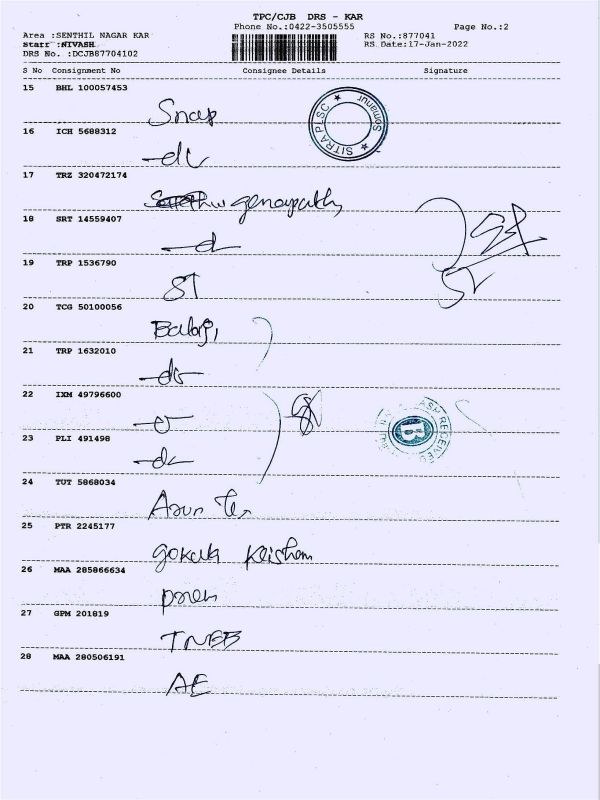 TPC/CJB DRS - KAR
Phone No.:0422-3505555 Page No.:2
Area :SENTHIL NAGAR KAR RS No.:877041
Staff :NIVASH RS Date:17-Jan-2022
DRS No. :DCJB87704102
S No Consignment No Consignee Details Signature
15 BHL 100057453
Snap
SITRA PLSC ★ Somanur ★
16 ICH 5688312
-do
17 TRZ 320472174
genapathy
18 SRT 14559407
-d
19 TRP 1536790
ST
20 TCG 50100056
Balaji
21 TRP 1632010
-do
22 IXM 49796600
23 PLI 491498
-do
24 TUT 5868034
Arun
25 PTR 2245177
gokula Krishnan
26 MAA 285866634
27 GPM 201819
TNEB
28 MAA 280506191
AE